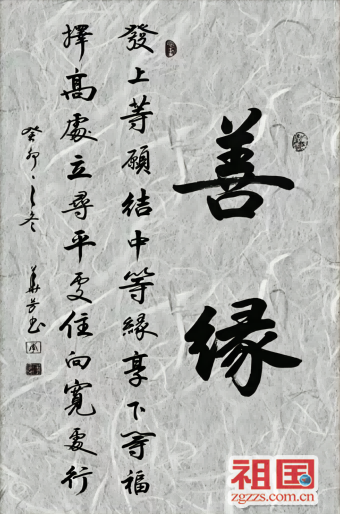 善緣
發上等願結中等緣享下等福
擇高處立尋平處住向寬處行
癸卯之冬 華芳書
祖国
zgzzs.com.cn